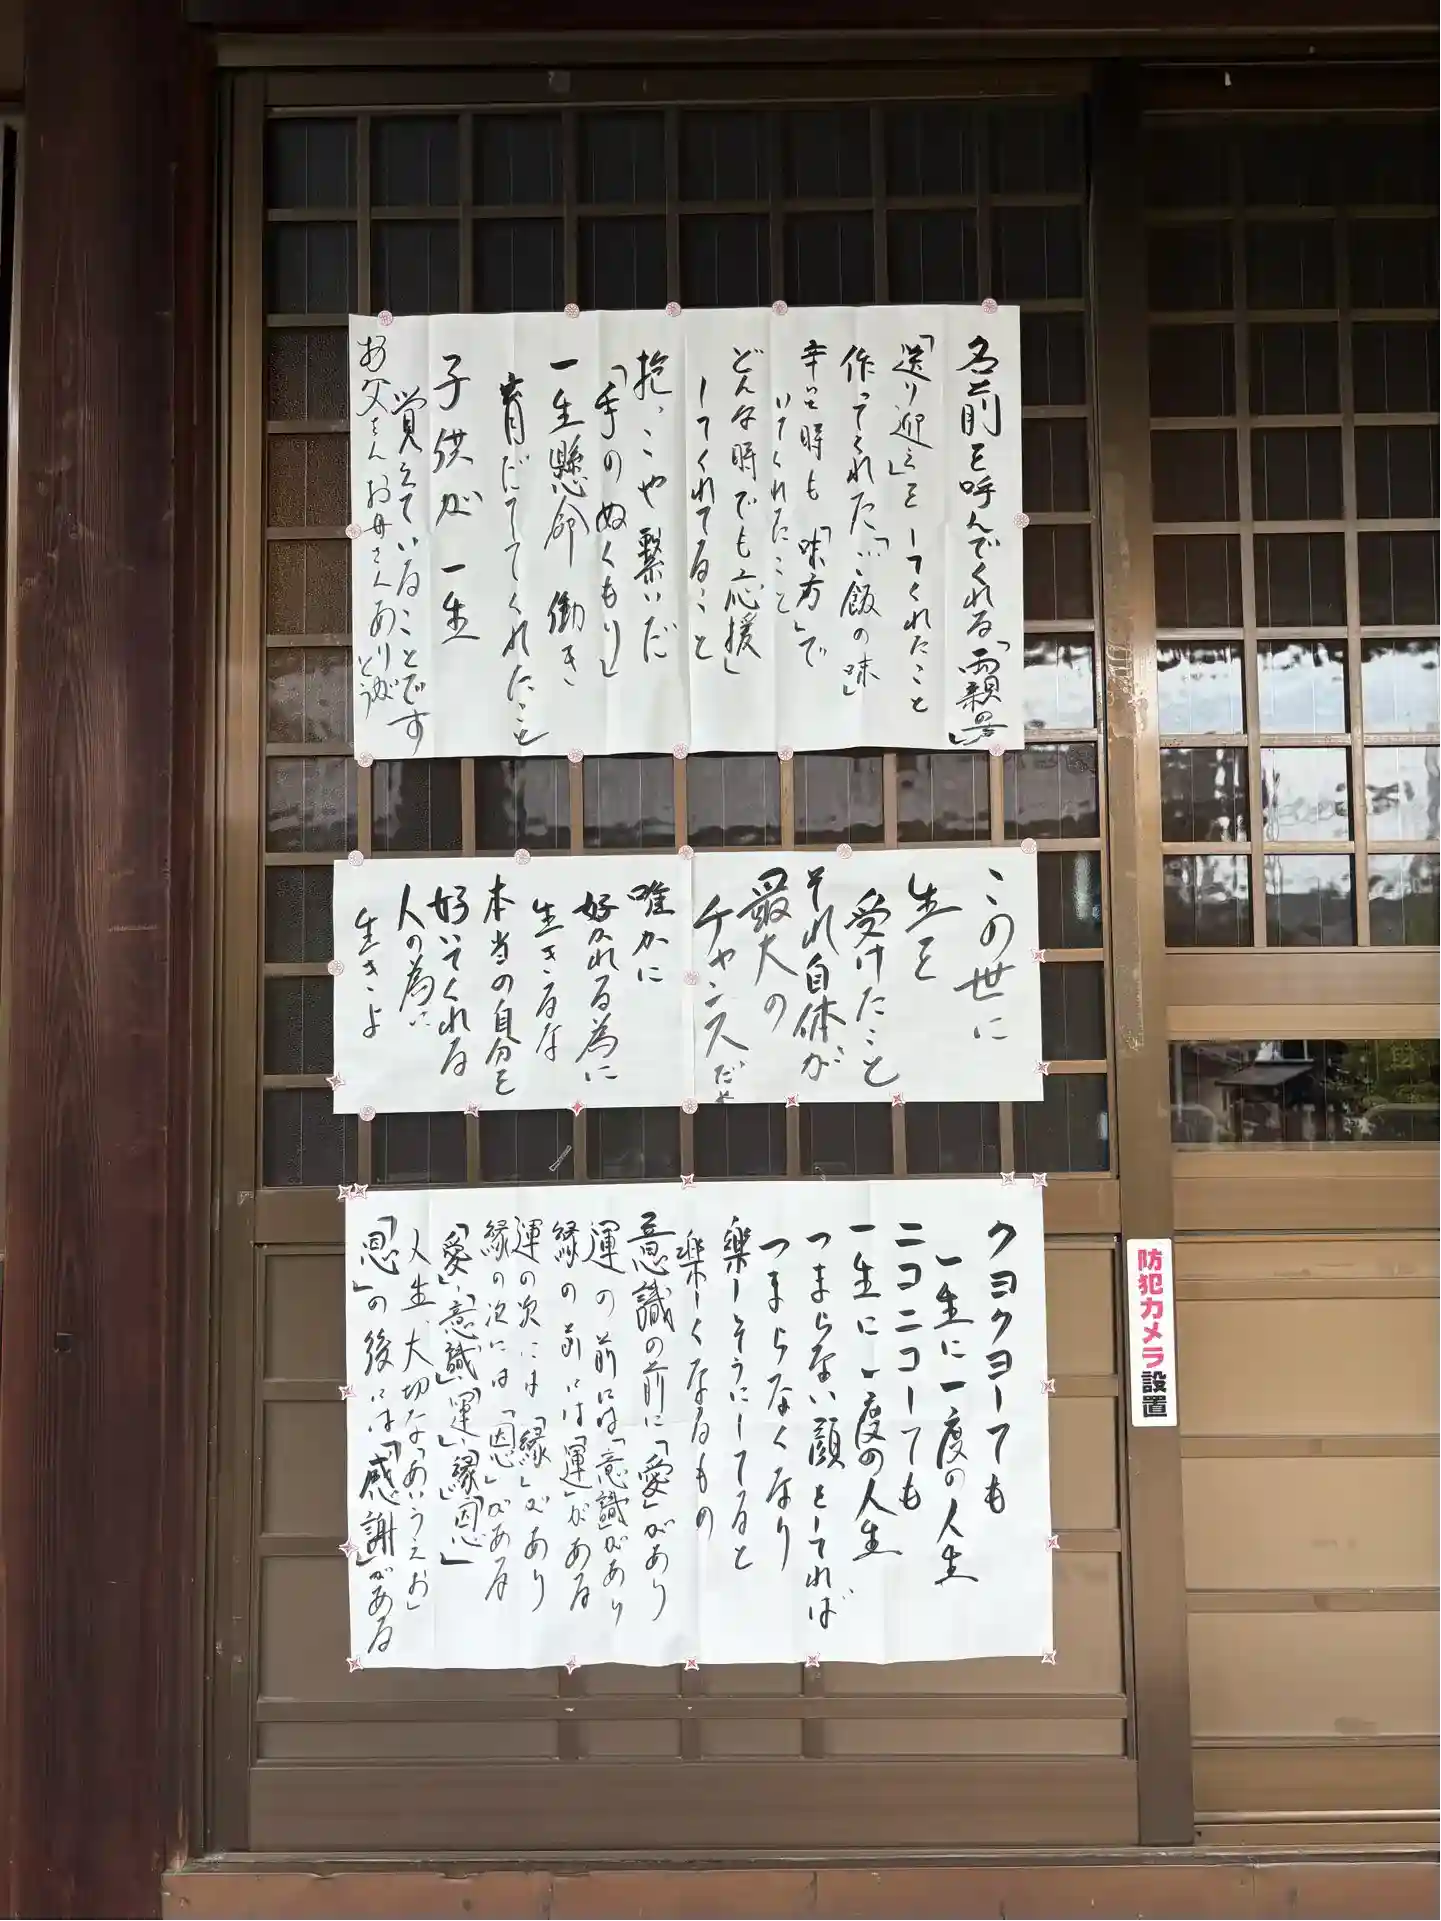 名前を呼んでくれる「親の愛」
「送り迎え」をしてくれたこと
作ってくれた「ご飯の味」
辛い時も「味方」で
いてくれたこと
どんな時でも「応援」
してくれてること
抱っこや繋いだ
「手のぬくもり」
一生懸命働き
育だててくれたこと
子供が一生
覚えていることです
お父さんお母さんありが
とう
この世に
生を
受けたこと
それ自体が
最大の
チャンスだ
唯かに
好かれる為に
生きるな
本当の自分を
好いてくれる
人の為に
生きよ
クヨクヨしても
一生に一度の人生
ニコニコしても
一生に一度の人生
つまらない顔をしてれば
つまらなくなり
楽しそうにしてると
楽しくなるもの
意識の前に「愛」があり
運の前には「意識」があり
縁の前には「運」がある
運の次には「縁」があり
縁の次には「恩」がある
「愛」「意識」「運」「縁」「恩」
人生、大切な「あいうえお」
「恩」の後には「感謝」がある
防犯カメラ設置